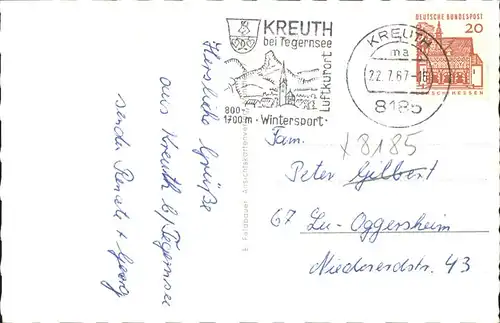 KREUTH
bei Tegernsee
Luftkurort
800-
1700 m · Wintersport ·
KREUTH
ma
22.7.67-15
8185
DEUTSCHE BUNDESPOST
20
HESSEN
Herzliche Grüße
aus Kreuth b/Tegernsee
senden Renate + Georg
Ansichtskartenverlag
x 8185
Fam.
Peter Gilbert
67 Lu-Oggersheim
43